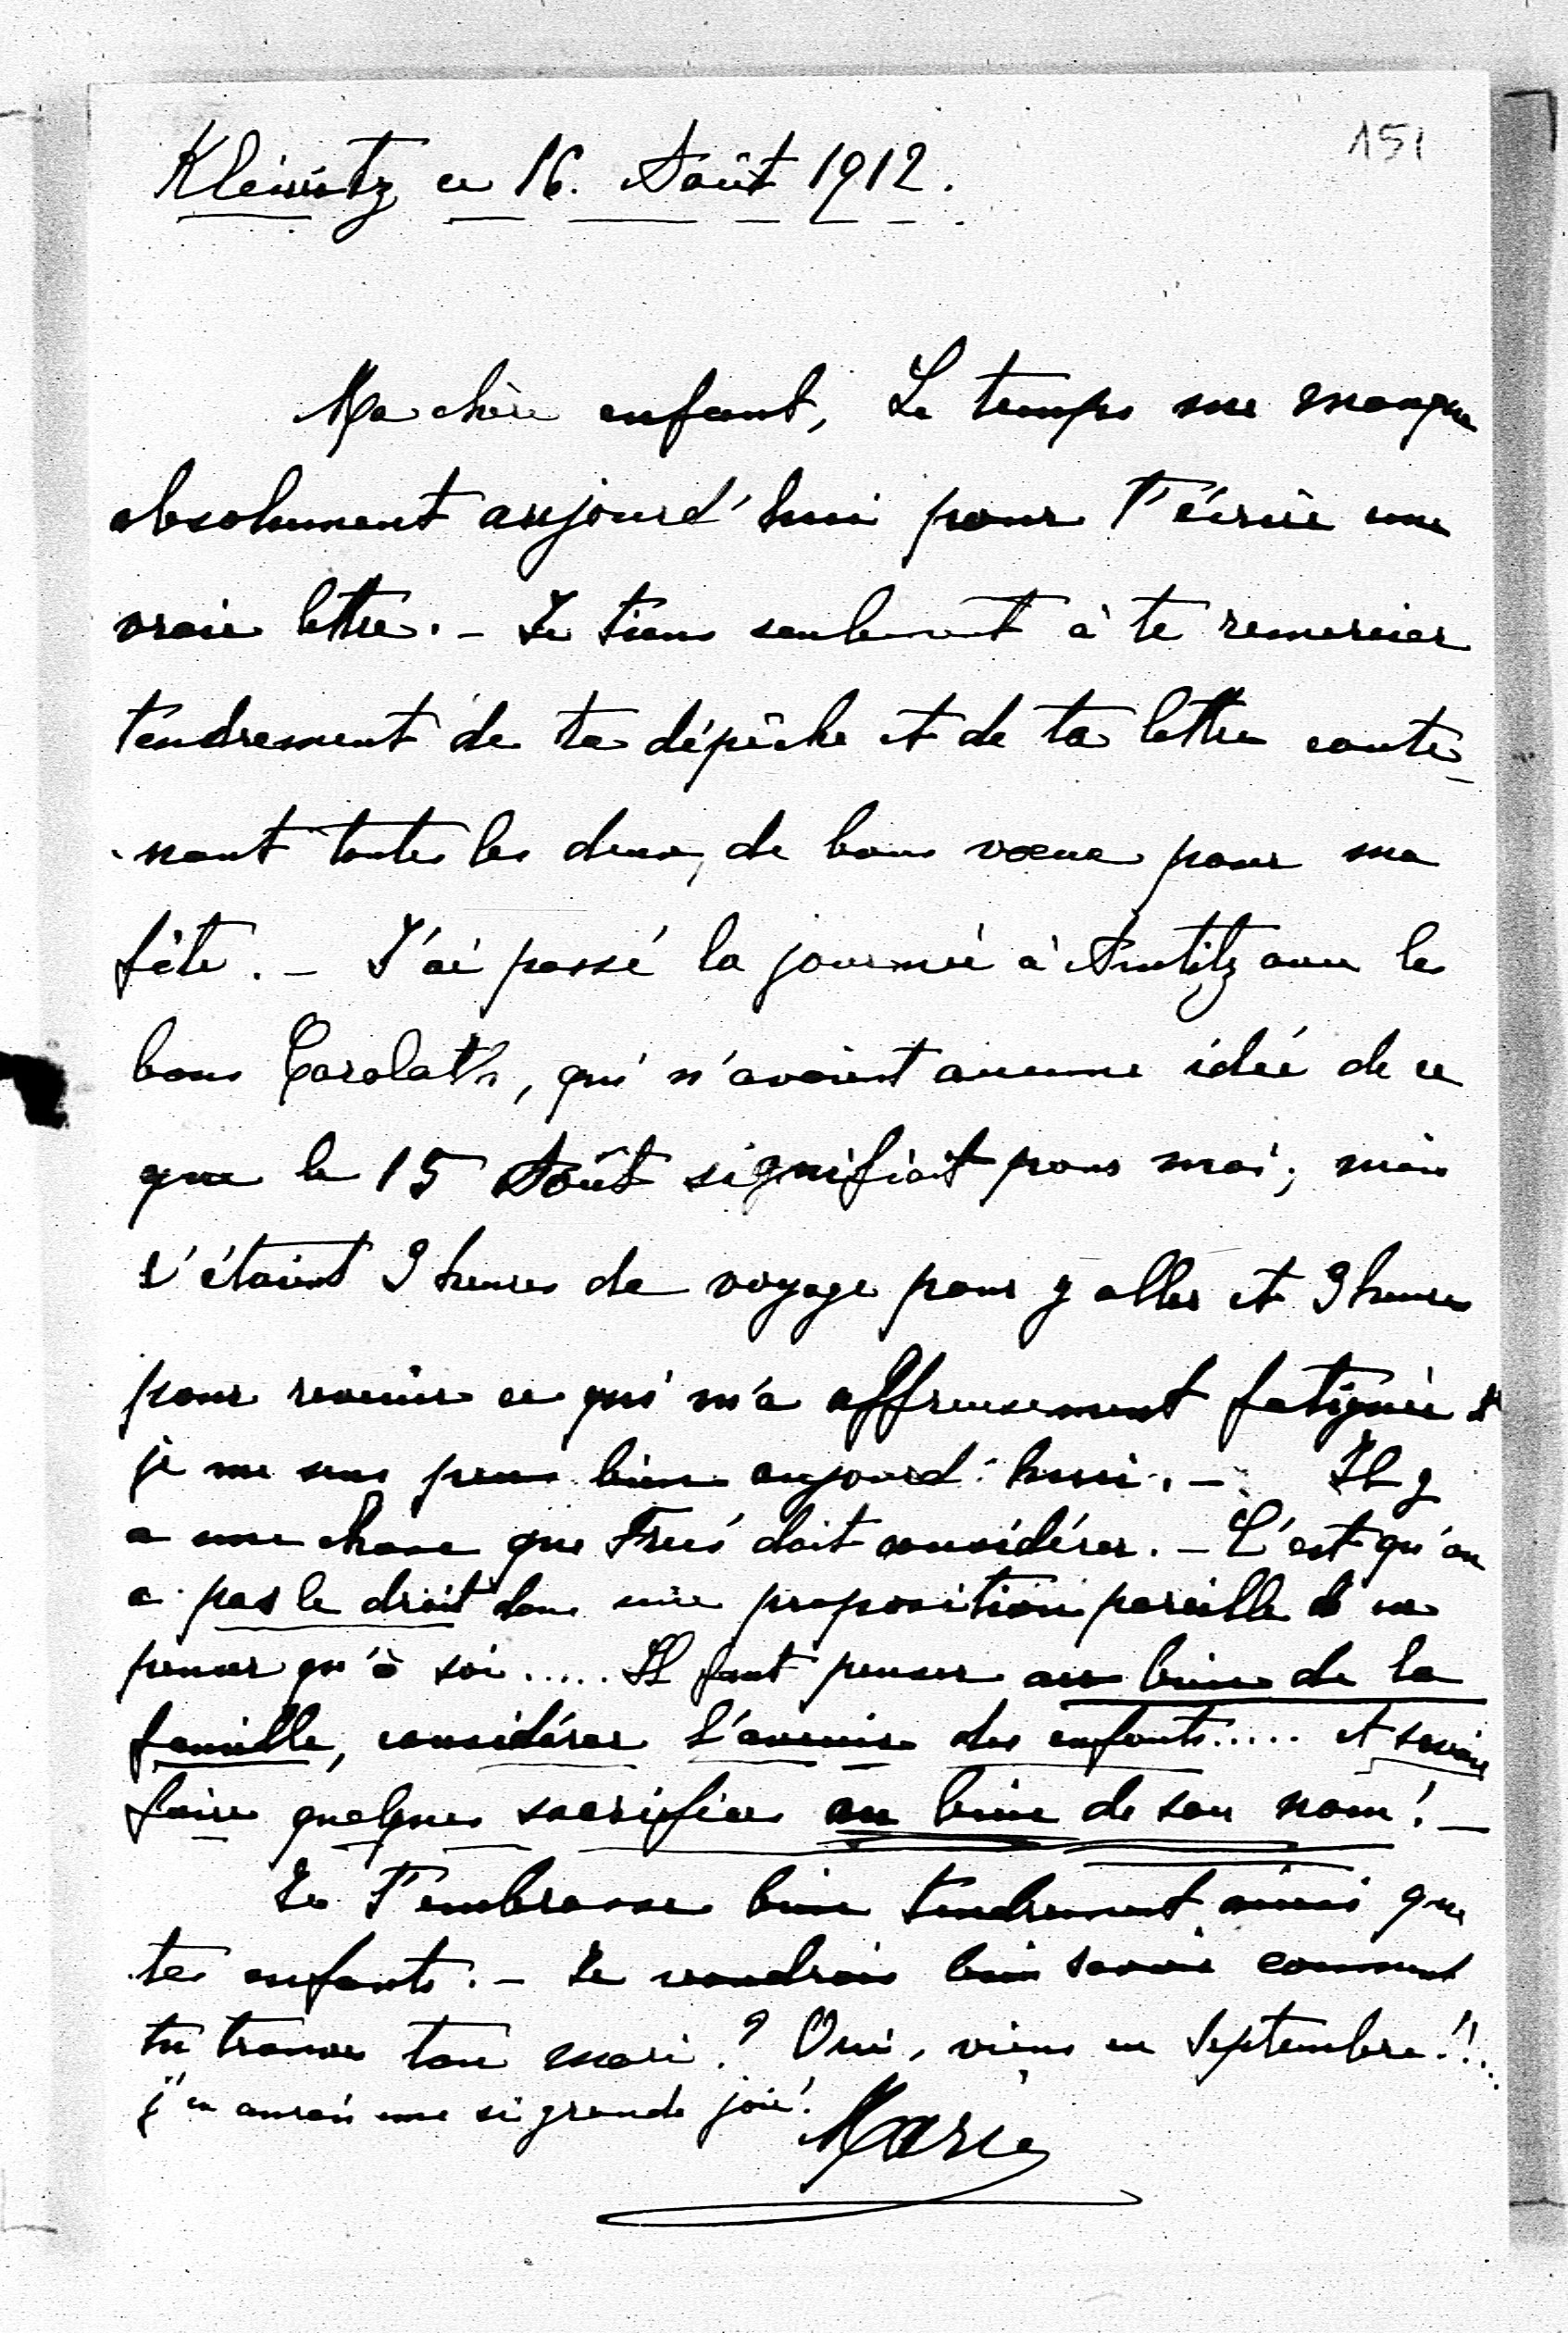 151
Kleinitz ce 16. Août 1912.
Ma chère enfant, Le temps me manque
absolument aujourd'hui pour t'écrire une
vraie lettre. — Je tiens seulement à te remercier
tendrement de ta dépêche et de ta lettre conte-
nant toutes les deux, de bons vœux pour ma
fête. — J'ai passé la journée à Amtitz avec les
bons Carolaths, qui n'avaient aucune idée de ce
que le 15 Août signifiait pour moi; mais
c'étaient 9 heures de voyage pour y aller et 9 heures
pour revenir ce qui m'a affreusement fatiguée et
je me sens peu bien aujourd'hui. — Il y
a une chose que doit considérer. — C'est qu'on
a pas le droit dans une proposition pareille de ne
penser qu'à soi ..... Il faut penser au bien de la
famille, considérer l'avenir des enfants ..... et savoir
faire quelques sacrifices au bien de son nom! —
Je t'embrasse bien tendrement ainsi que
tes enfants. — Je voudrais bien savoir comment
tu trouves ton mari? Oui, viens en Septembre!!...
j'en aurais une si grande joie!
Marie